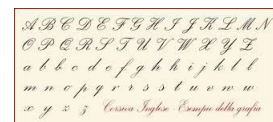 A B C D E F G H I J K L M N
O P Q R S T U V W X Y Z
a b b c d o f g h h i j k l l
m n o p q r s s t u v w w
x y z z Corsiva Inglese - Esempio della grafia